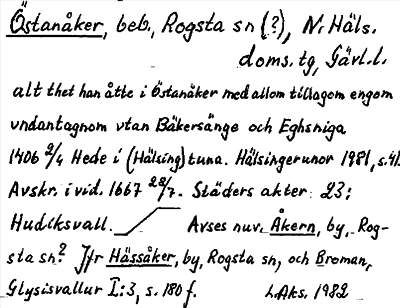 Östanåker, beb., Rogsta sn (?), N. Häls.
doms. tg, Gävl. l.
alt thet han åtte i Östanåker med allom tillagom engom
vndantagnom vtan Bäkersänge och Eghsniga
1406 2/4 Hede i (Hälsing)tuna. Hälsingerunor 1981, s. 41.
Avskr. i vid. 1667 28/7. Städers akter 23:
Hudiksvall. Avses nuv. Åkern, by, Rog-
sta sn? Jfr Hässåker, by, Rogsta sn, och Broman,
Glysisvallur I:3, s. 180 f. L. Aks. 1982